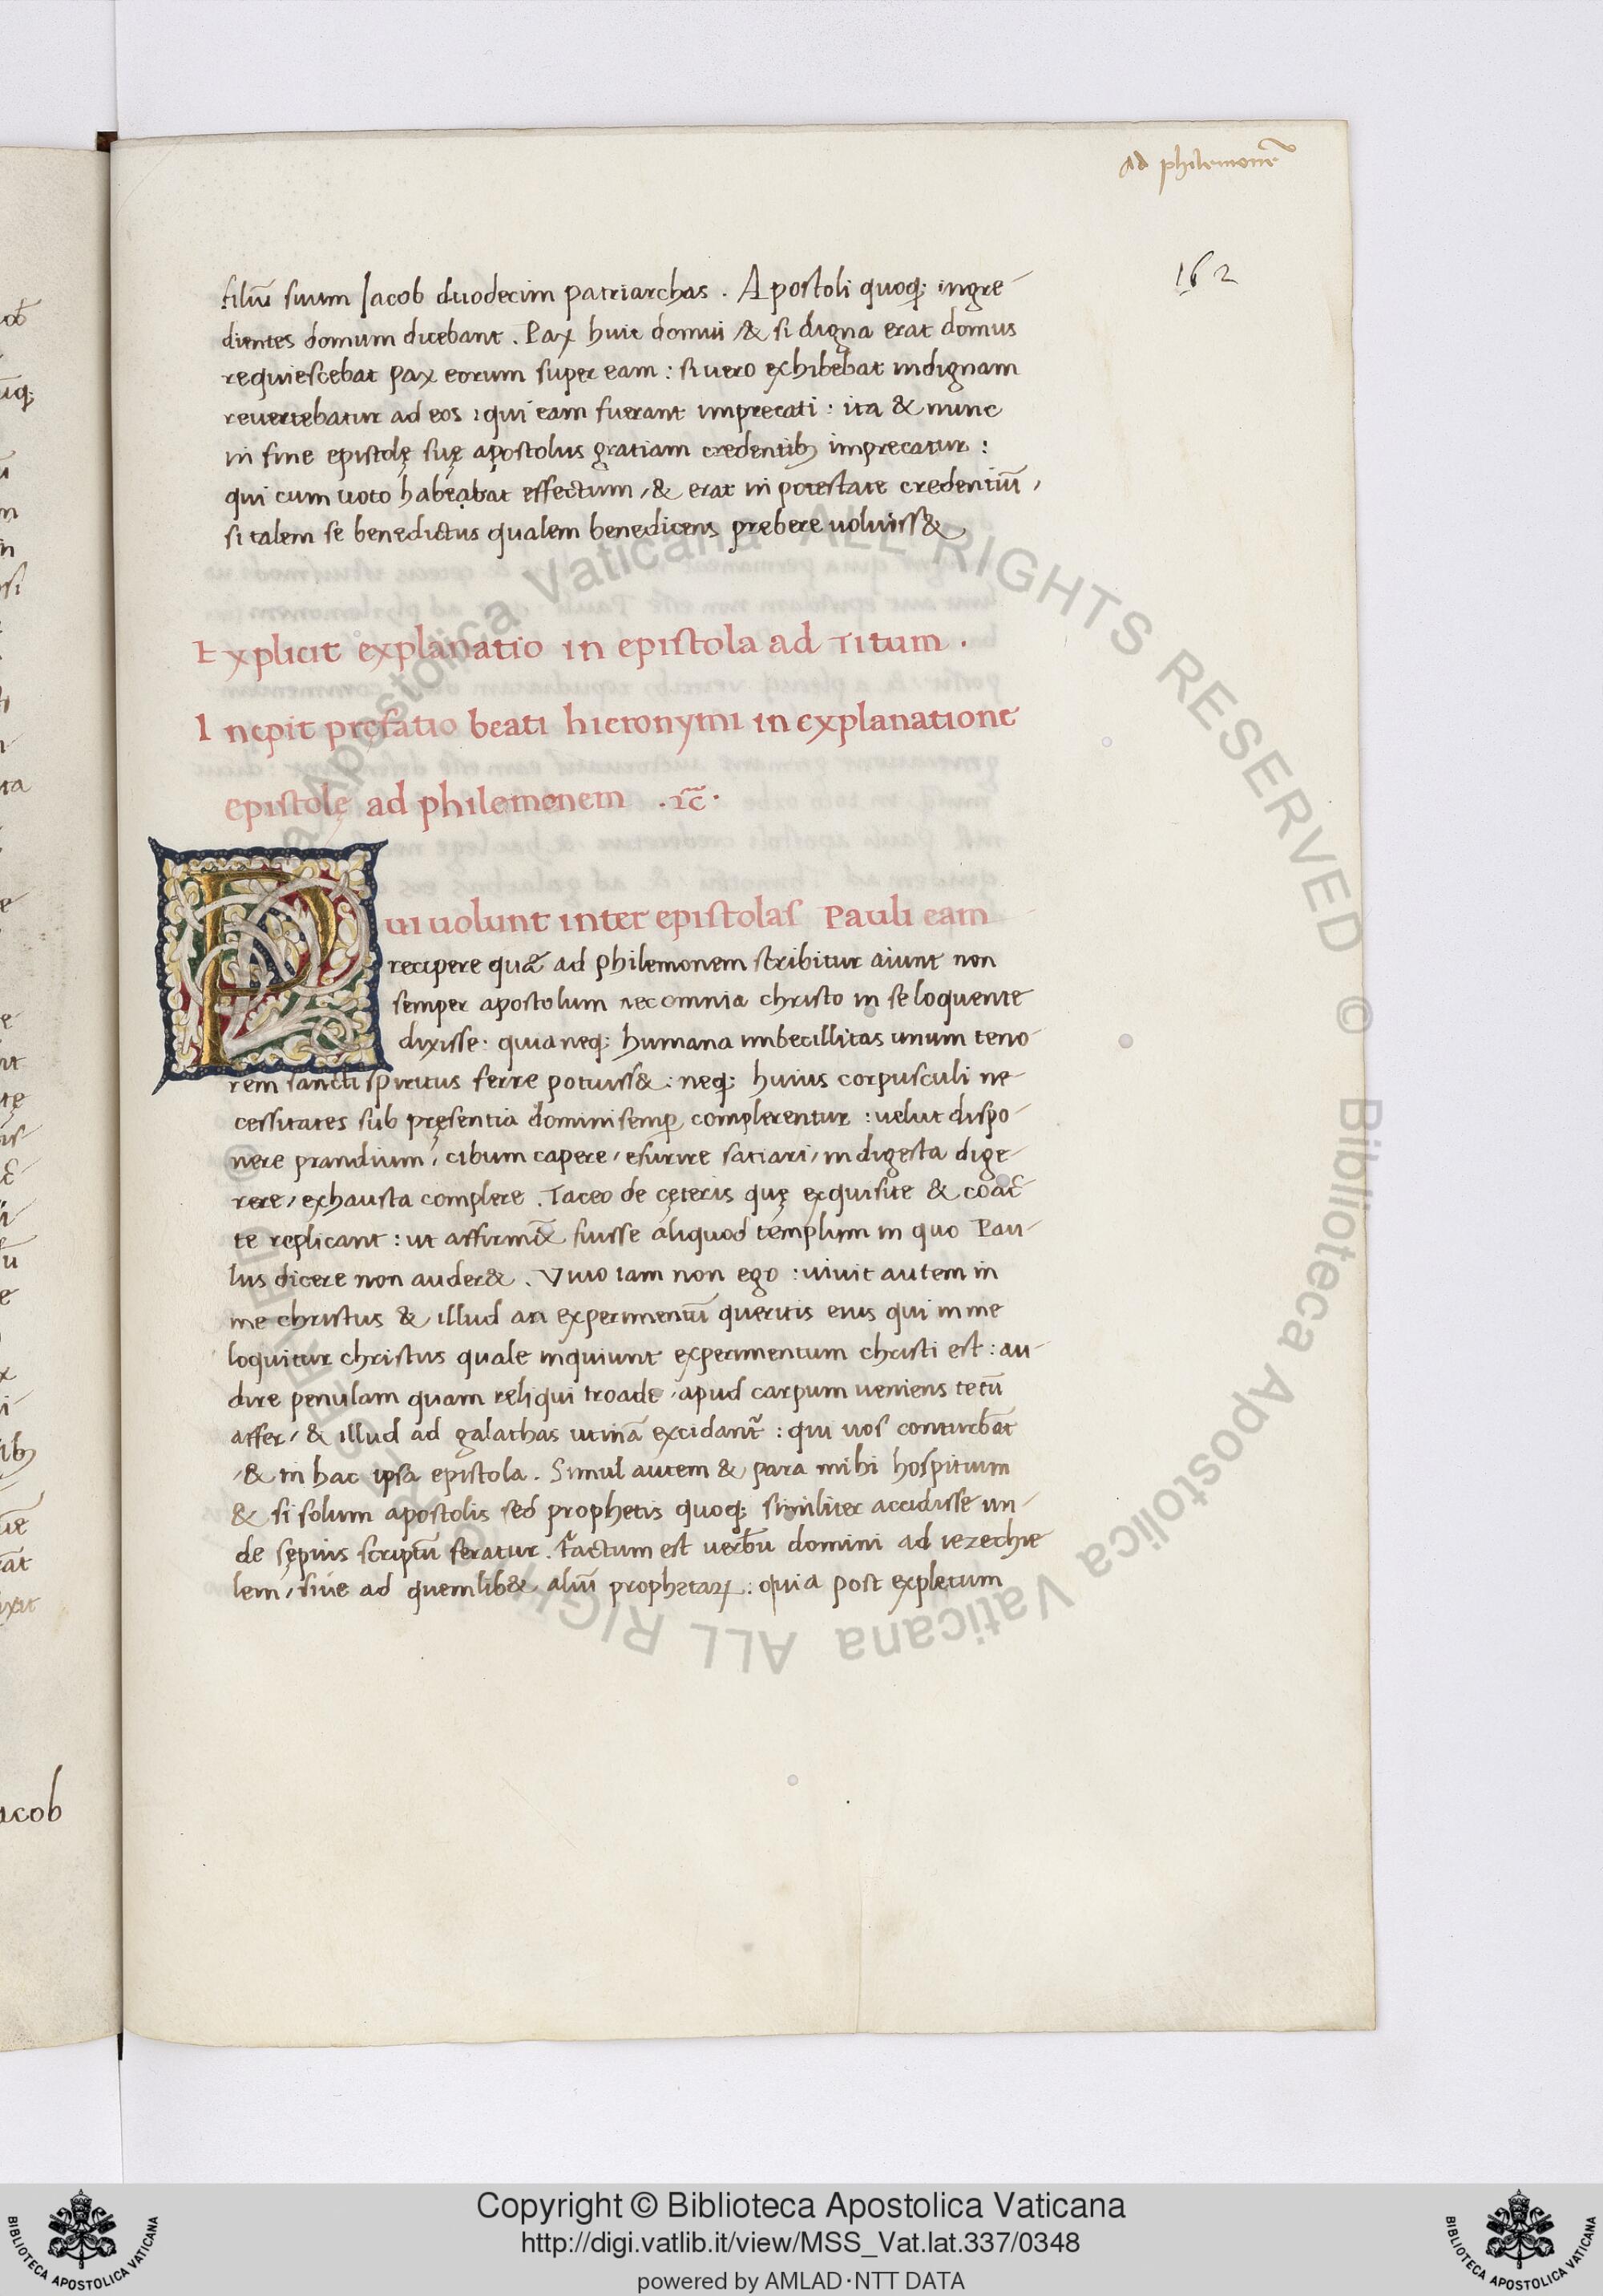 ad philemonē
162
filiū suum Jacob duodecim patriarchas . Apostoli quoq; ingre-
dientes domum dicebant . Pax huic domui / & si digna erat domus
requiescebat pax eorum super eam : si uero exhibebat indignam
reuertebatur ad eos : qui eam fuerant imprecati : ita & nunc
in fine epistolę suę apostolus gratiam credentibꝫ imprecatur :
qui cum uoto habeabat effectum / & erat in potestate credentiū /
si talem se benedictus qualem benedicens prebere uoluiss&
Explicit explanatio in epistola ad Titum .
Incpit prefatio beati hieronymi in explanatione
epistolę ad philemonem .
P
ui uolunt inter epistolas Pauli eam
recipere quā ad philemonem scribitur aiunt non
semper apostolum nec omnia christo in se loquente
dixisse : quia neq; humana imbecillitas unum teno-
rem sancti spiritus ferre potuiss& : neq; huius corpusculi ne-
cessitates sub pręsentia domini semꝑ complerentur : uelut dispo-
nere prandium / cibum capere / esurire satiari / indigesta dige-
rere / exhausta complere . Taceo de cęteris quę exquisite & coac-
te replicant : ut affirmēt fuisse aliquod templum in quo Pau-
lus dicere non auder& . Viuo iam non ego : uiuit autem in
me christus & illud an experimentū queritis eius qui in me
loquitur christus quale inquiunt experimentum christi est : au-
dire penulam quam reliqui troade / apud carpum ueniens tecū
affer / & illud ad galathas utinā excidant᷑ : qui uos conturbāt
/ & in hac ipsa epistola . Simul autem & para mihi hospitium
& si solum apostolis sed prophetis quoq; similiter accidisse un-
de sępius scriptū feratur . Factum est uerbū domini ad iezechie
lem / siue ad quemlib& aliū prophetaꝝ : quia post expletum
ob
uq;
ta
ibꝫ
āt
ixit
acob
© Biblioteca Apostolica Vaticana ALL RIGHTS RESERVED © Biblioteca Apostolica Vaticana ALL RIGHTS RESERVED
Copyright © Biblioteca Apostolica Vaticana
http://digi.vatlib.it/view/MSS_Vat.lat.337/0348
powered by AMLAD·NTT DATA
BIBLIOTECA APOSTOLICA VATICANA
BIBLIOTECA APOSTOLICA VATICANA